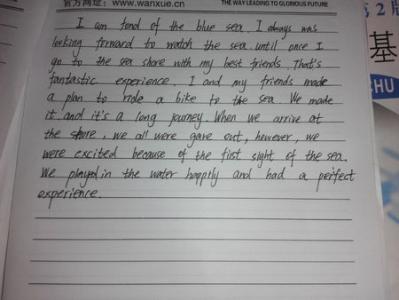 官方网址：www.wanxue.cn THE WAY LEADING TO GLORIOUS FUTURE
I am fond of the blue sea. I always was
looking forward to watch the sea until once I
go to the sea shore with my best friends. That's
fantastic experience. I and my friends made
a plan to ride a bike to the sea. We made
it and it's a long journey. When we arrive at
the shore, we all were gave out, however, we
were excited because of the first sight of the sea.
We played in the water happily and had a perfect
experience.
第2版
基
CHU